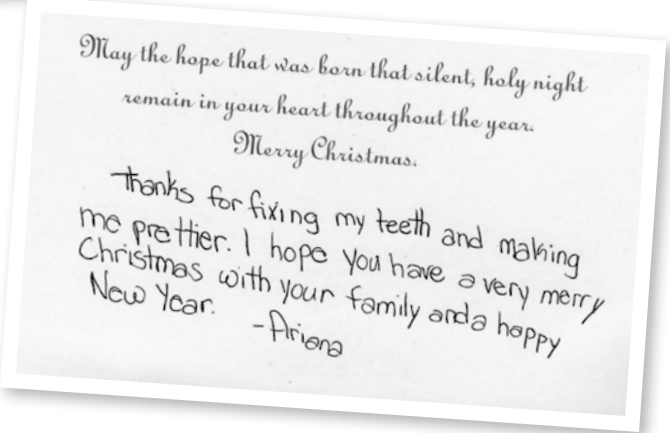 May the hope that was born that silent, holy night
remain in your heart throughout the year.
Merry Christmas.
Thanks for fixing my teeth and making
me prettier. I hope you have a very merry
Christmas with your family and a happy
New Year.
-Ariana